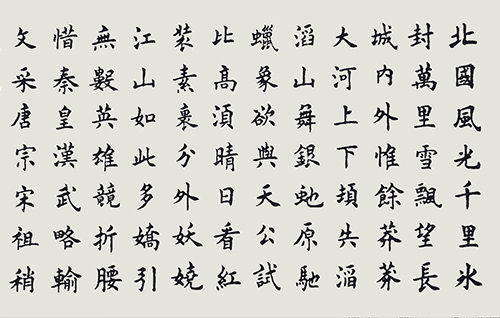 北國風光千里氷
封萬里雪飄望長
城內外惟餘莽莽
大河上下頓失滔
滔山舞銀虵原馳
蠟象欲與天公試
比高湏晴日看紅
裝素裹分外妖嬈
江山如此多嬌引
無數英雄競折腰
惜秦皇漢武略輸
文采唐宗宋祖稍